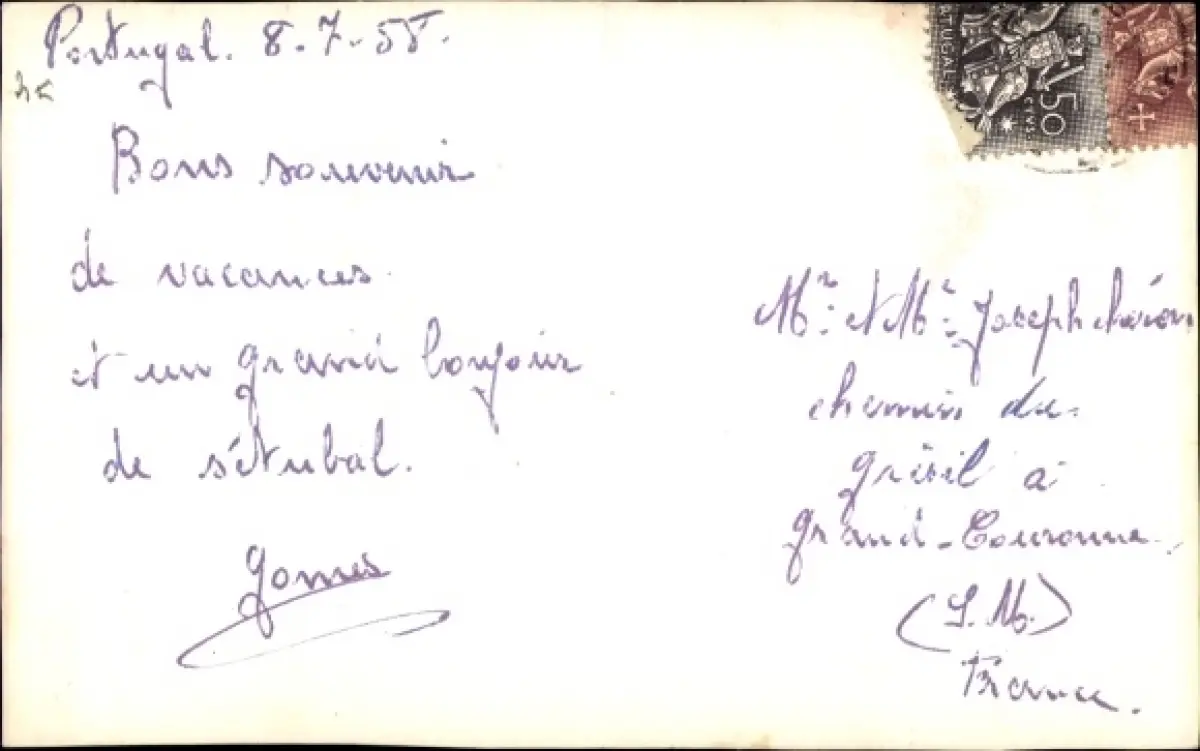 Portugal. 8-7-55.
Bons souvenir
de vacances
et un grand bonjour
de sétubal.
Gomes
PORTUGAL
50
CTVS
Mr. et Me. Joseph
chemin du
à
grand-Couronne
(S.M.)
France.